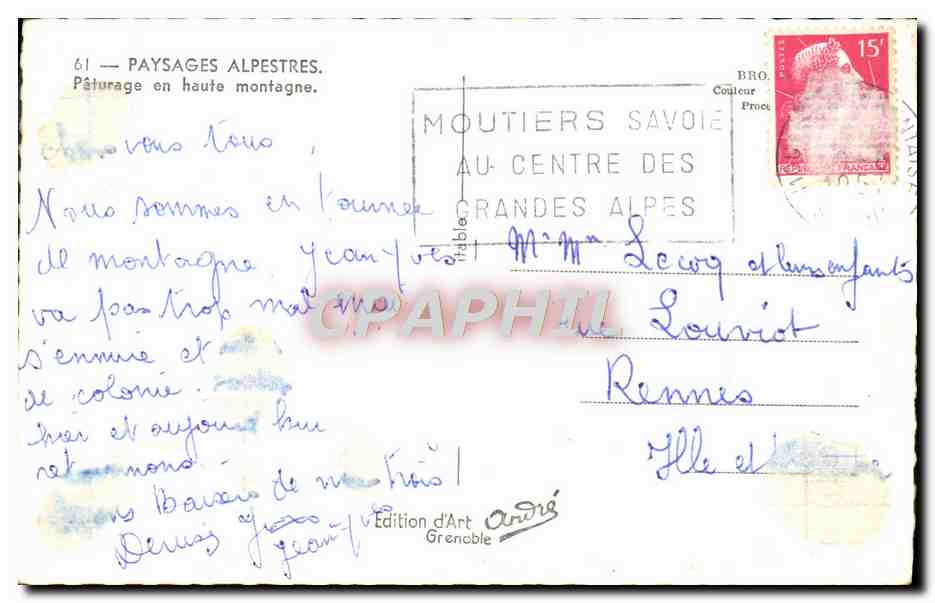 61 — PAYSAGES ALPESTRES.
Pâturage en haute montagne.
BRO
Couleur
Procé
POSTES
15F
MOUTIERS SAVOIE
AU CENTRE DES
GRANDES ALPES
itable
vous tous,
Nous sommes en tournée
de montagne. Jean Yves
va pas trop mal mais
s'ennuie et
de colonie.
hier et aujourd'hui
Baisers de nous trois!
Denise
Jean-Yves
Mr Mme Lecoq et leurs enfants
rue Louviot
Rennes
Ille et
CPAPHIL
Edition d'Art André
Grenoble